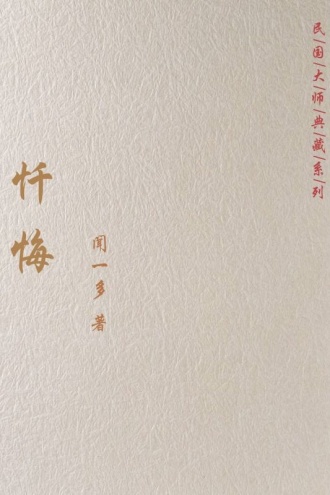 民国大师典藏系列
忏悔
闻一多 著